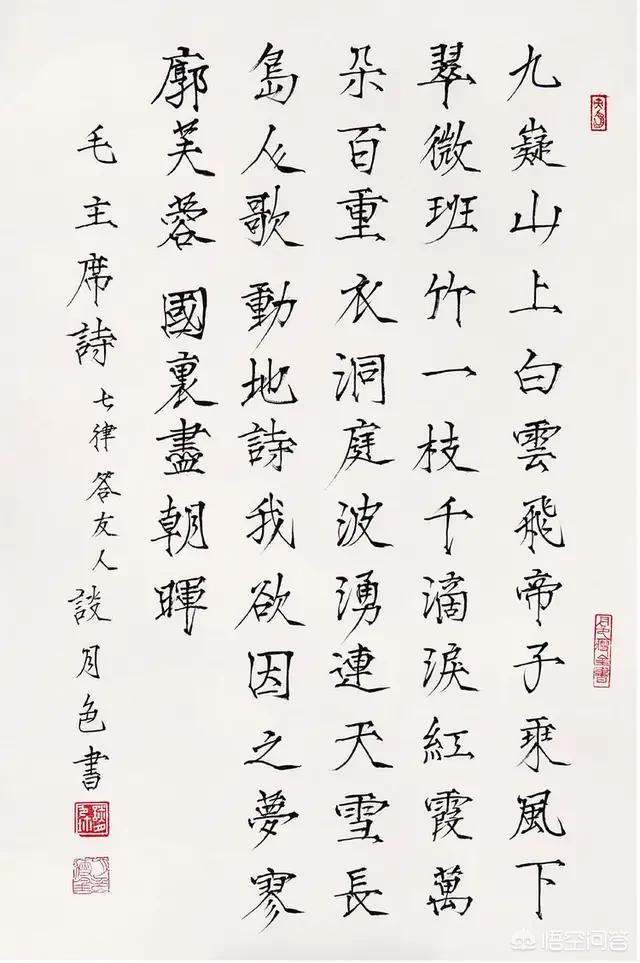 九嶷山上白雲飛帝子乘風下
翠微班竹一枝千滴淚紅霞萬
朵百重衣洞庭波湧連天雪長
島人歌動地詩我欲因之夢寥
廓芙蓉國裏盡朝暉
毛主席詩 七律 答友人 談月色書
悟空问答